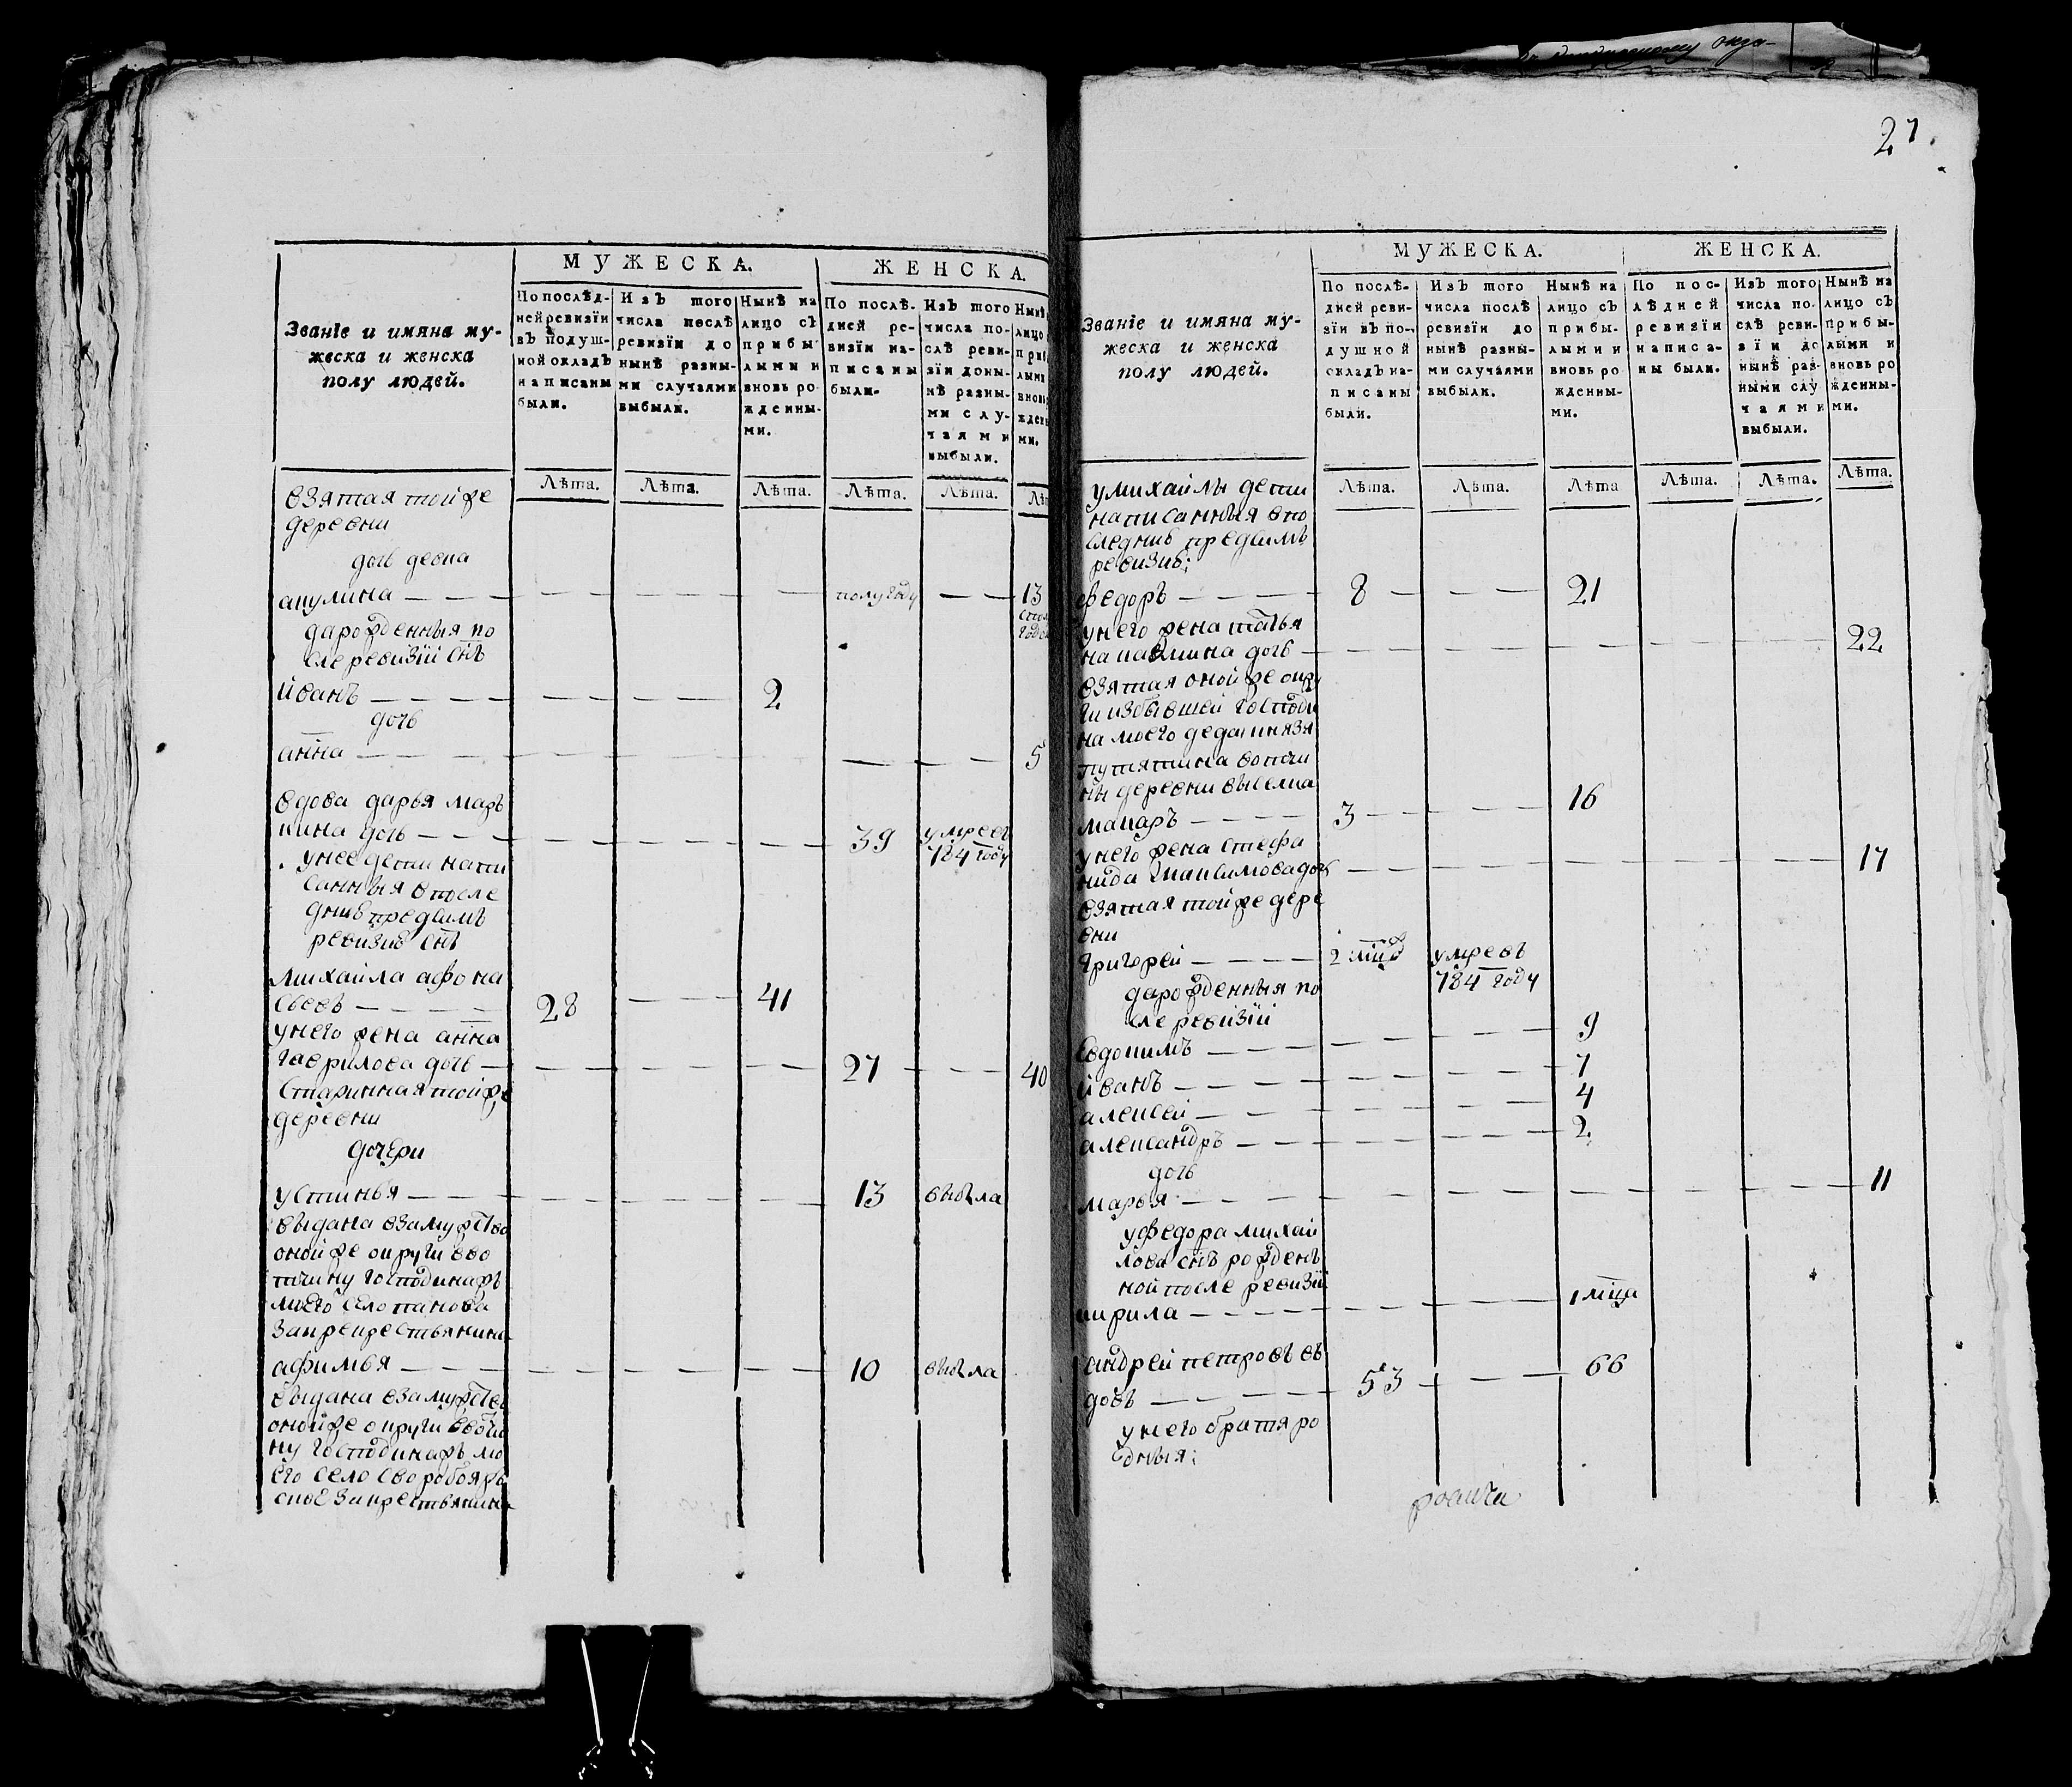 27.
МУЖЕСКА.
ЖЕНСКА.
Званїе и имяна му-
жеска и женска
полу людей.
По послѣд-
ней ревизїи
въ подуш-
ной окладъ
написаны
были.
Изъ того
числа послѣ
ревизїи до
нынѣ разны-
ми случаями
выбыли.
Нынѣ на
лицо съ
прибы
лыми и
вновь ро
жденны-
ми.
По послѣ-
дней ре-
визїи на-
писаны
были.
Изъ того
числа по-
слѣ реви-
зїи доны-
нѣ разны-
ми слу-
чаями
выбыли.
Нынѣ
лицо
ми.
Лѣта. Лѣта. Лѣта. Лѣта. Лѣта.
взятая тойже
деревни
дочь девка
акулина — полугоду — 13
дарожденныя по
сле ревизїи снъ
иванъ — 2
дочь
анна — 5
вдова дарья марь
кина дочь — 39 умреть
784 году
унее дети напи
санныя в после
дней пред симъ
ревизиѣ снъ
михайла афона
сьевъ — 28 — 41
унего жена анна
гаврилова дочь — 27 — 40
старинная тойже
деревни
дочери
устинья — 13 выбыла
выдана взамужство
онойже округи вво
тчину господинажъ
моего село панова
закрепрестьянина
афимья — 10 выбыла
выдана взамужств
онойже округи ввотчи
ну господинажъ мо
его село
МУЖЕСКА.
ЖЕНСКА.
Званїе и имяна му-
жеска и женска
полу людей.
По послѣ-
дней реви-
зїи въ по-
душной
окладъ на-
писаны
были.
Изъ того
числа послѣ
ревизїи до
нынѣ разны-
ми случаями
выбыли.
Нынѣ на
лицо съ
прибы-
лыми и
вновь ро
жденны-
ми.
По пос-
лѣдней
ревизїи
написа-
ны были.
Изъ того
числа по-
слѣ реви-
зїи до
нынѣ раз-
ными слу
чаями
выбыли.
Нынѣ на
лицо съ
прибы-
лыми и
вновь ро
жденны-
ми.
Лѣта. Лѣта. Лѣта Лѣта. Лѣта. Лѣта.
умихайлы дети
написанныя впо
следнѣ предсимъ
ревизиѣ:
федоръ — 8 — 21
унего жена татья
на павлина дочь — 22
взятая онойже окру
ги избывшей господи
на моего деда князя
путятина вотчи
ны деревни выселка
макаръ — 3 — 16
унего жена стефа
нида максимова дочь — 17
взятая тойже дере
вни
григорей — 2 мцъ умревъ
784 году
дарожденныя по
сле ревизїи
Евдокимъ — 9
иванъ — 7
алексей — 4
александръ — 2
дочь
марья — 11
уфедора михай
лова снъ рожден
ной после ревизїи
кирила — 1 мцъ
андрей петровъ въ
довъ — 53 — 66
унего братя ро
дныя: